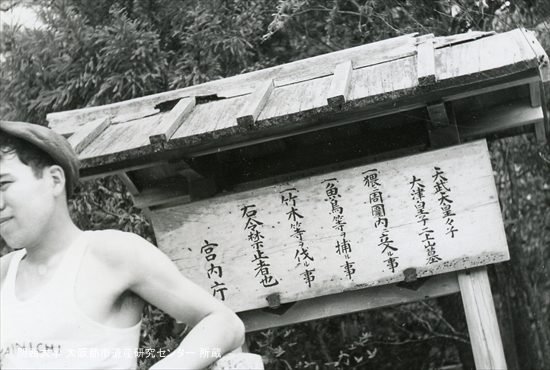 天武天皇々子
大津皇子二上山墓
一猥ニ周圍内ニ立入ル事
一魚鳥等ヲ捕ル事
一竹木等ヲ伐ル事
右令禁止者也
宮内庁
大阪都市遺産研究センター 所蔵